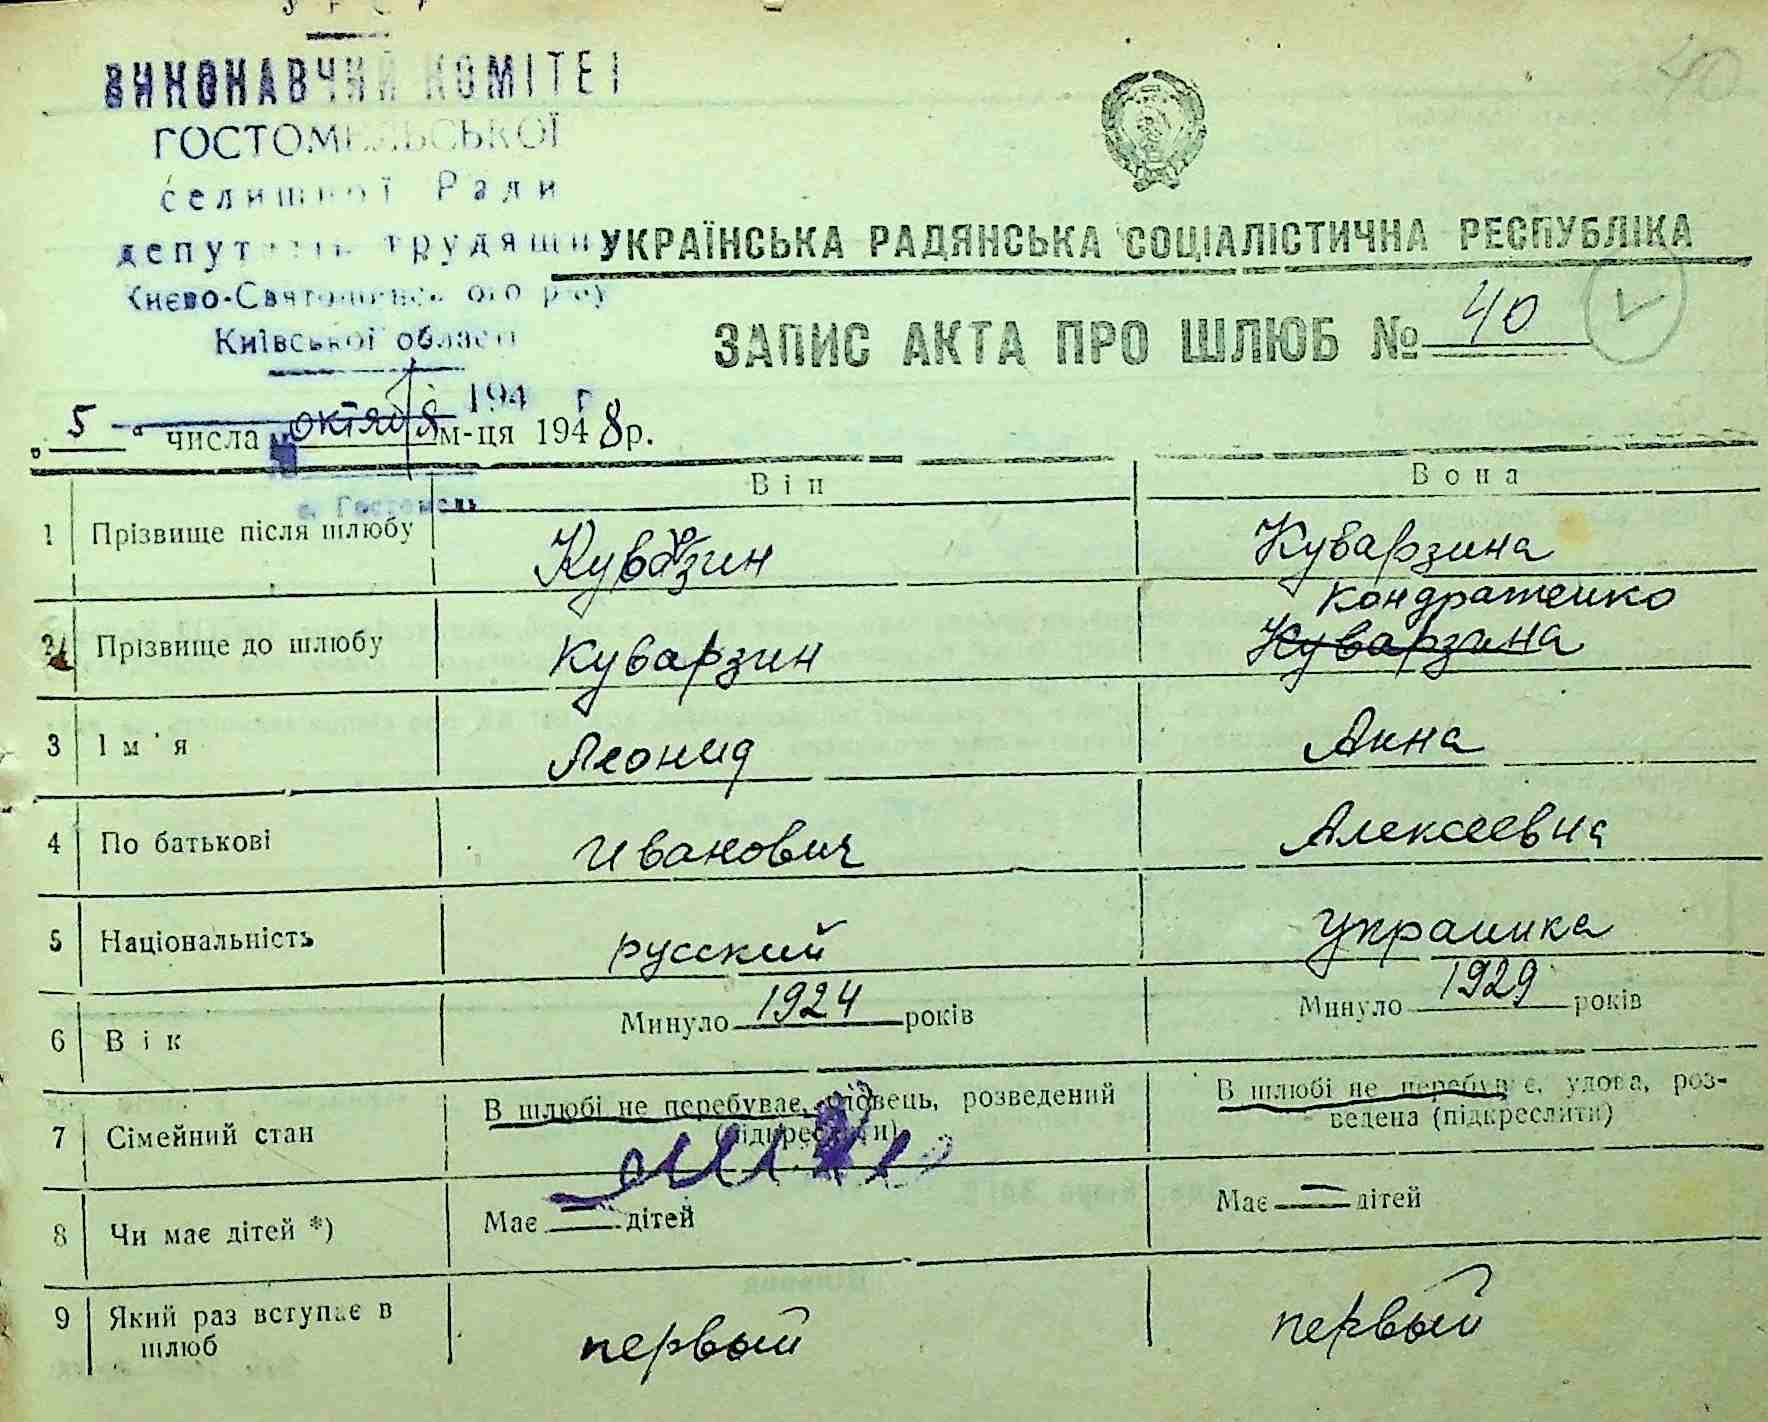 УРСР
ВИКОНАВЧИЙ КОМІТЕТ
ГОСТОМЕЛЬСЬКОЇ
селищної Ради
депутатів трудящих
Києво-Святошинського р-ну
Київської області
194 р
с. Гостомель
40
УКРАЇНСЬКА РАДЯНСЬКА СОЦІАЛІСТИЧНА РЕСПУБЛІКА
ЗАПИС АКТА ПРО ШЛЮБ № 40
„ 5 “ числа октября м-ця 1948 р.
Він Вона
1 Прізвище після шлюбу Куварзин Куварзина
Кондратенко
2 Прізвище до шлюбу Куварзин Куварзина
3 Ім'я Леонид Анна
4 По батькові Иванович Алексеевна
5 Національність русский Украинка
6 Вік Минуло 1924 років Минуло 1929 років
7 Сімейний стан В шлюбі не перебуває, вдовець, розведений (підкреслити) В шлюбі не перебуває, удова, роз-
ведена (підкреслити)
8 Чи має дітей *) Має — дітей Має — дітей
9 Який раз вступає в первый первый
шлюб